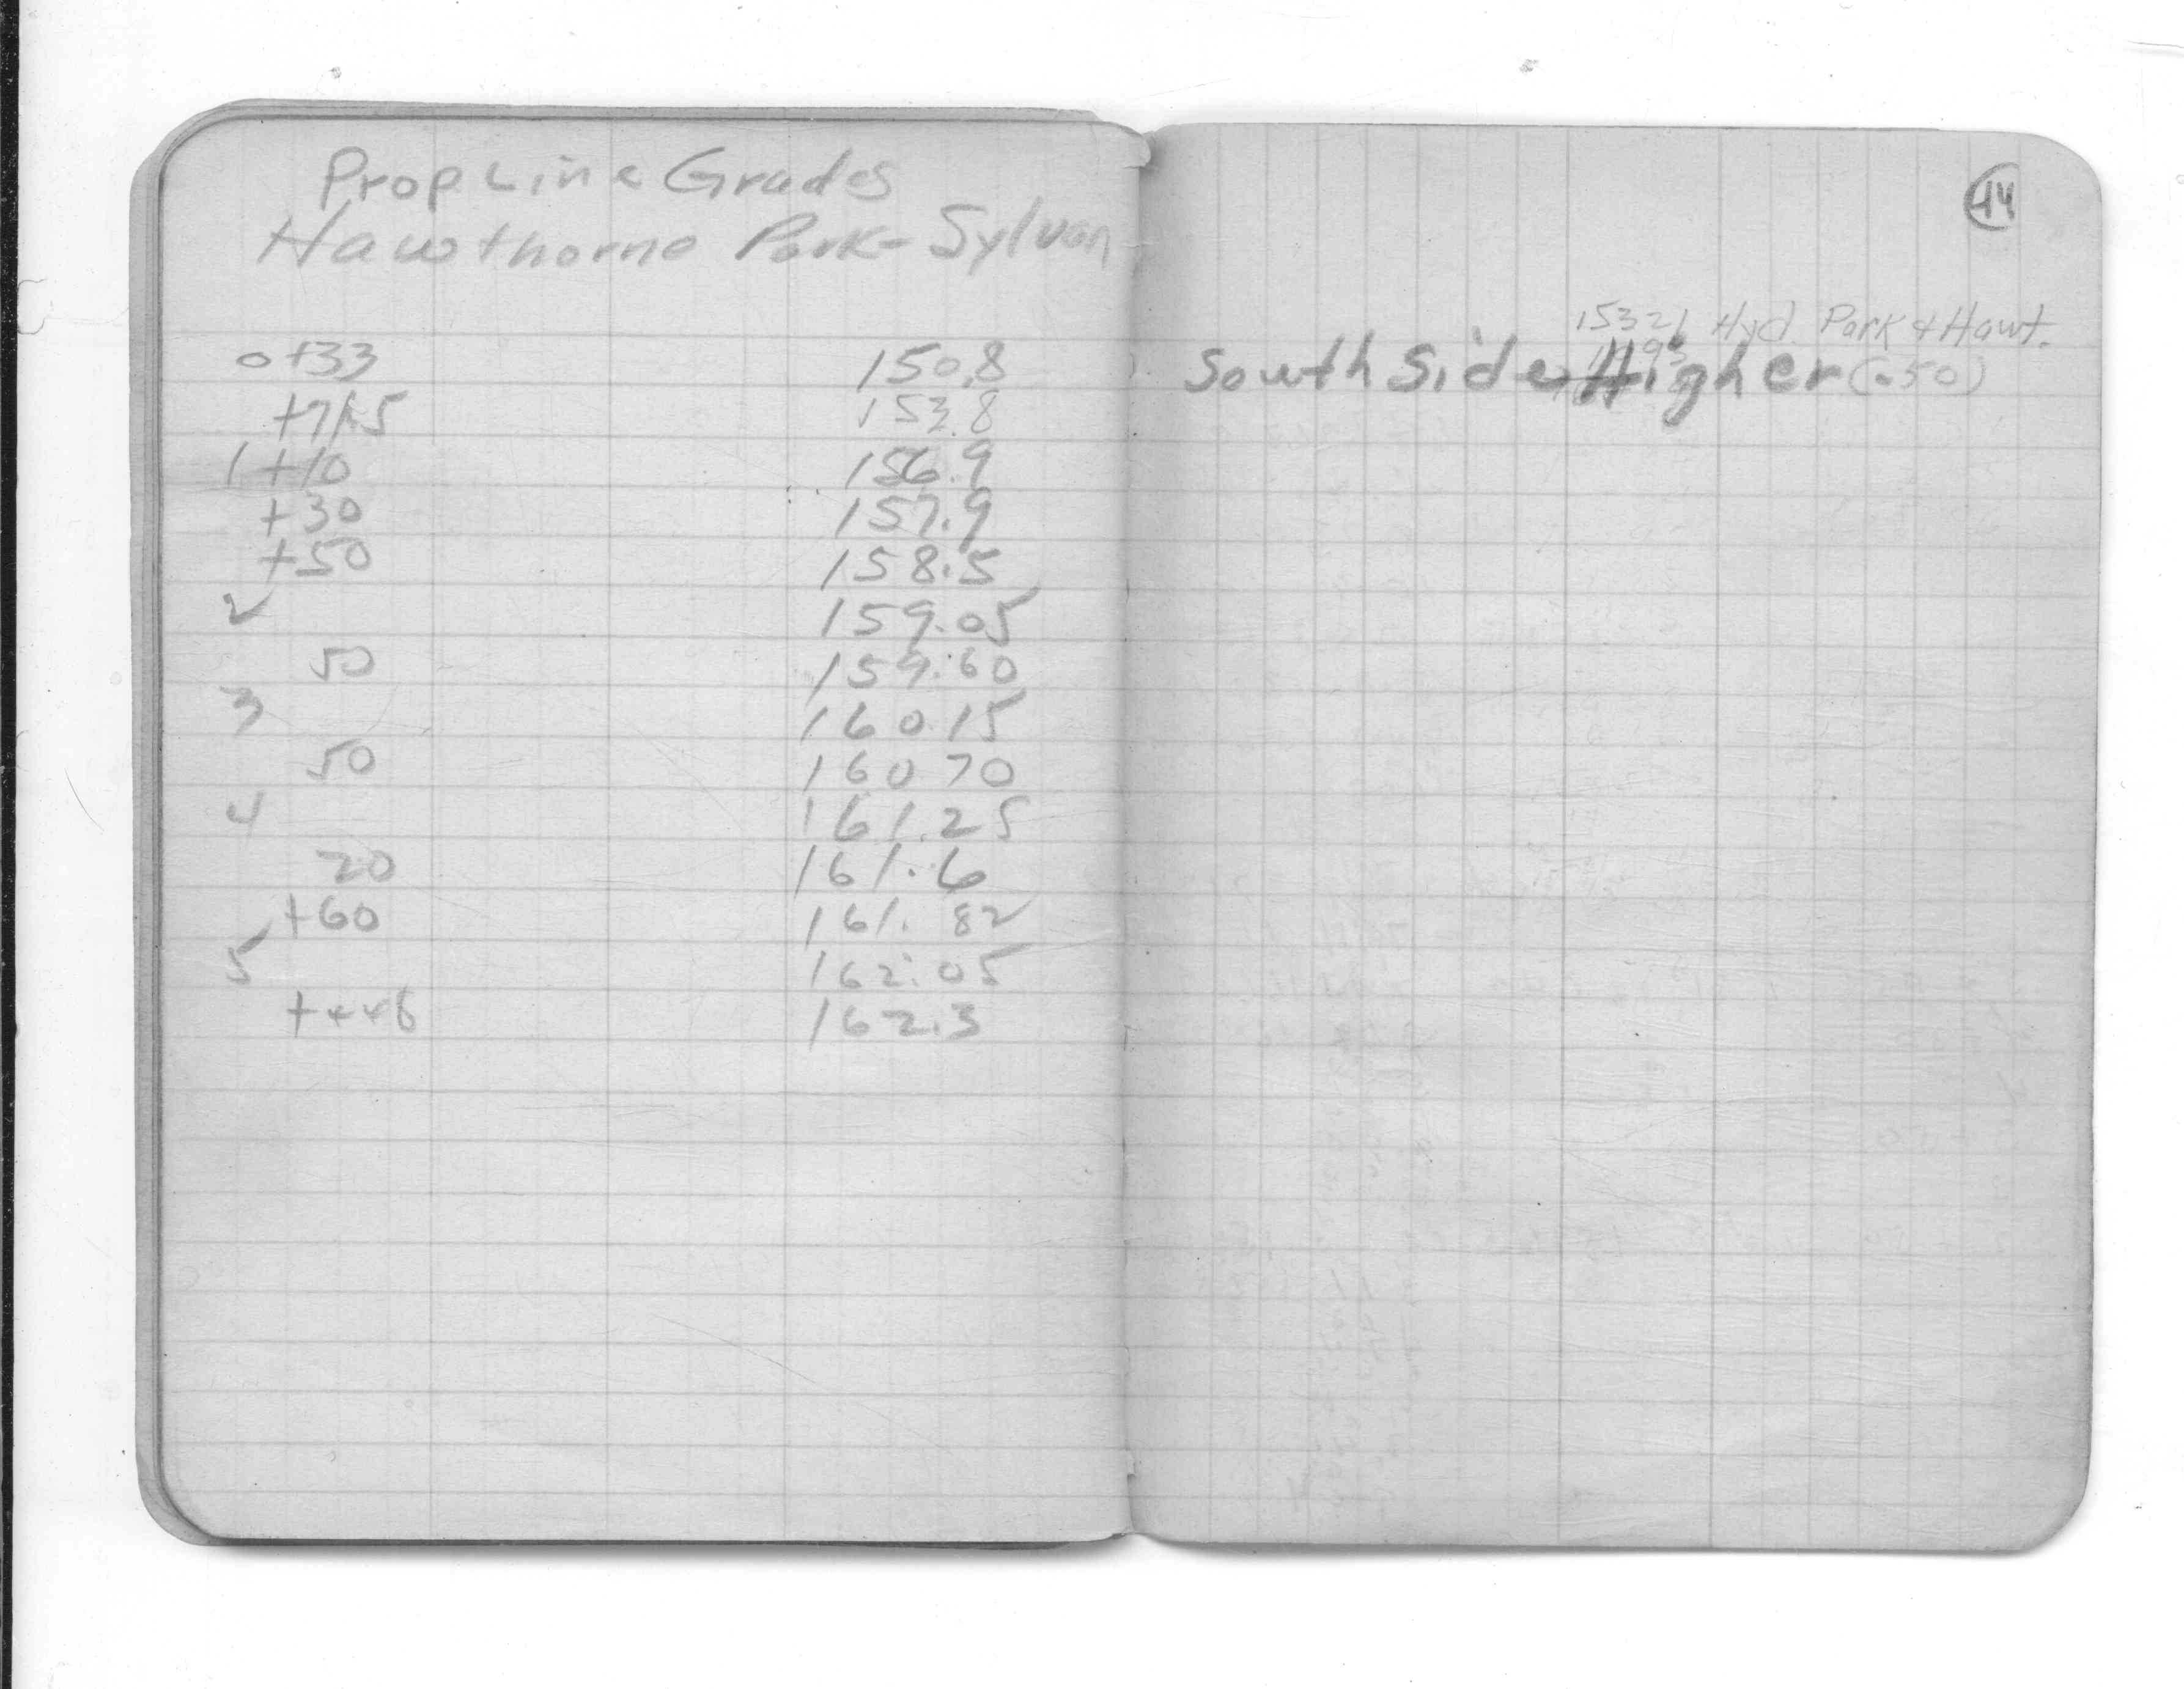 Prop Line Grades
Hawthorne Park - Sylvan
0+33 150.8
+71.5 153.8
1+10 156.9
+30 157.9
+50 158.5
2 159.05
50 159.60
3 160.15
50 160 70
4 161.25
20 161.6
+60 161.82
5 162.05
+446 162.3
44
15321 Hyd. Park & Hawt.
South Side Higher (.50)